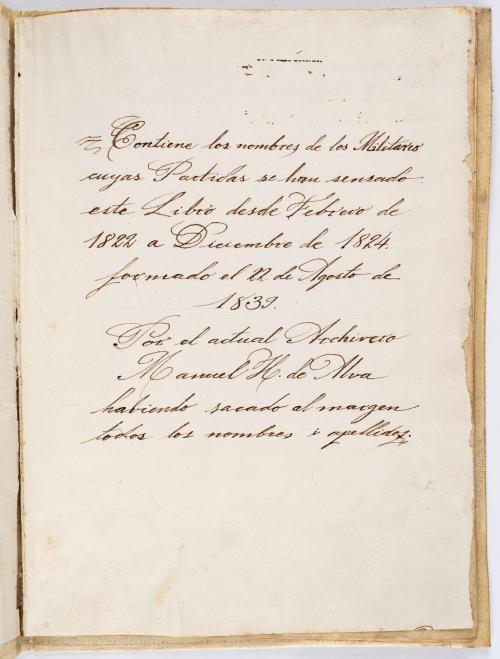 Contiene los nombres de los Militares
cuyas Partidas se han sensado
este Libro desde Febrero de
1822 a Diciembre de 1824.
formado el 22 de Agosto de
1839.
Por el actual Archivero
Manuel H. de Alva
habiendo sacado al margen
todos los nombres i apellidos.